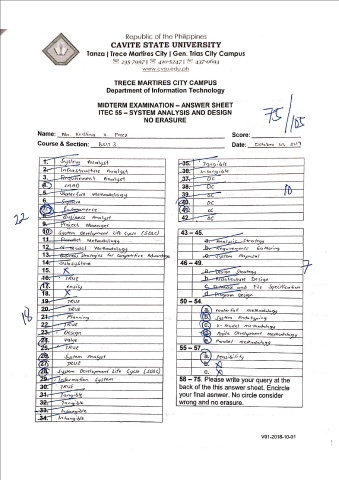 Republic of the Philippines
CAVITE STATE UNIVERSITY
Tanza | Trece Martires City | Gen. Trias City Campus
www.cvsu.edu.ph
TRECE MARTIRES CITY CAMPUS
Department of Information Technology
MIDTERM EXAMINATION – ANSWER SHEET
ITEC 55 – SYSTEM ANALYSIS AND DESIGN
NO ERASURE
75/105
Name: Ma. Kristina
Score:
Course & Section:
Date: October 10,
1. System Analyst
2. Infrastructure Analyst
3. Requirement Analyst
4.
5. Waterfall Methodology
6.
7.
8. Business Analyst
9. Project Manager
10. System Development Life Cycle (SDLC)
11. Parallel Methodology
12. V-model Methodology
13. Business Strategies for Competitive Advantage
14.
15. X
16. TRUE
17.
18. X
19. TRUE
20. TRUE
21. Planning
22. TRUE
23. Design
24. Value
25. TRUE
26. System Analyst
27. TRUE
28. System Development Life Cycle (SDLC)
29. Information System
30. TRUE
31. Tangible
32. Tangible
33. Intangible
34. Intangible
22
18
35. Tangible
36. Intangible
37. OC
38. OC
39. OC
40. OC
41. OC
42. OC
10
43 – 45.
a. Analysis Strategy
b. Requirements Gathering
c. System Proposal
46 – 49.
7
a. Design Strategy
b. Architecture Design
c. Database and File Specification
d. Program Design
50 – 54.
a. Waterfall methodology
b. System Prototyping
c. V-model methodology
d. Agile Development methodology
e. Parallel methodology
55 – 57.
a. Feasibility
b. X
c. X
58 – 75. Please write your query at the
back of the this answer sheet. Encircle
your final asnwer. No circle consider
wrong and no erasure.
V01-2018-10-01